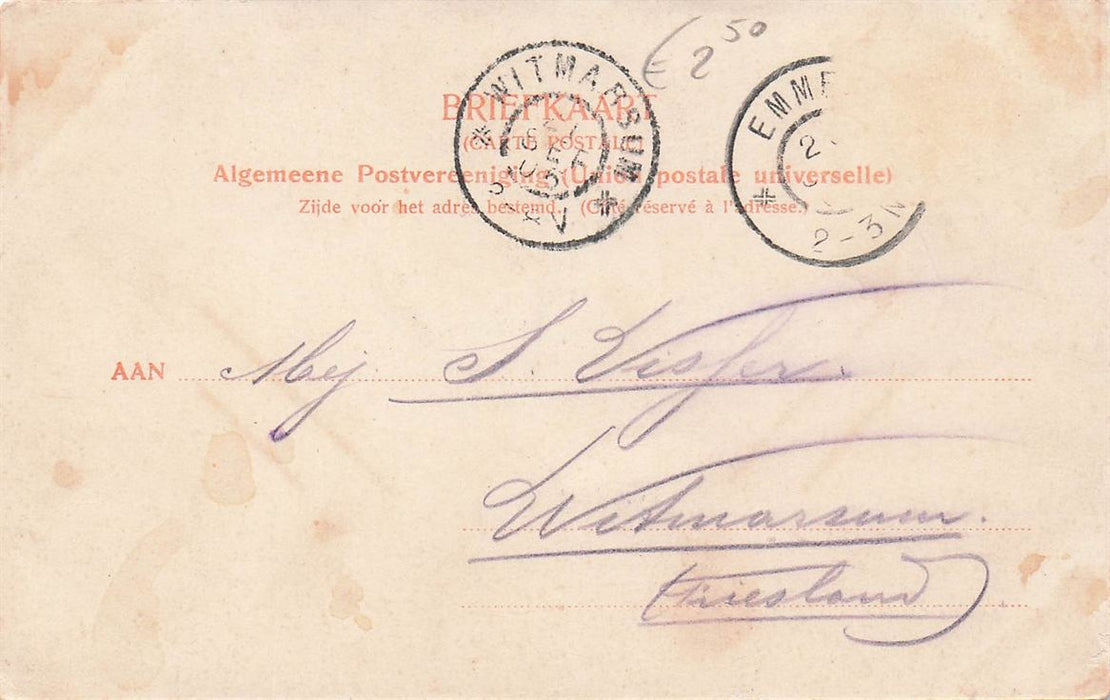 € 2 50
WITMARSUM
EMME
2-3N
BRIEFKAART
(CARTE POSTALE)
Algemeene Postvereeniging (Union postale universelle)
Zijde voor het adres bestemd. (Côté réservé à l'adresse.)
AAN Mej S. Visser.
Witmarsum.
Friesland